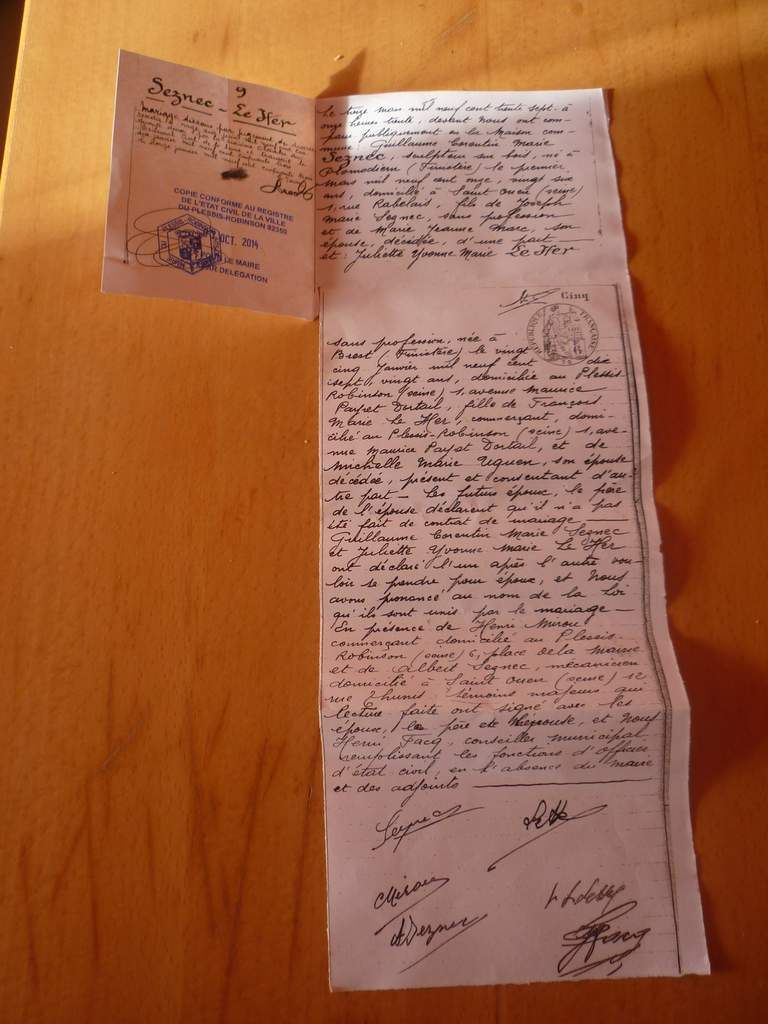 9
Seznec - Le Her
Mariage dissous par jugement de divorce
COPIE CONFORME AU REGISTRE
DE L'ETAT CIVIL DE LA VILLE
DU PLESSIS-ROBINSON 92350
OCT. 2014
LE MAIRE
PAR DELEGATION
Le treize mars mil neuf cent trente sept - à
onze heures trente, devant Nous ont com-
paru publiquement en la Maison com-
mune : Guillaume Corentin Marie
Seznec, sculpteur sur bois, né à
Plomodiern (Finistère) le premier
mars mil neuf cent onze, vingt six
ans, domicilié à Saint Ouen (seine)
1, rue Rabelais, fils de Joseph
Marie Seznec, sans profession
et de Marie Jeanne Marc, son
épouse, décédée, d'une part
et : Juliette Yvonne Marie Le Her
Cinq
REPUBLIQUE FRANÇAISE
sans profession, née à
Brest (Finistère) le vingt
cinq Janvier mil neuf cent dix
sept, vingt ans, domiciliée au Plessis
Robinson (seine) 1, avenue Maurice
Payret Dortail, fille de François
Marie Le Her, commerçant, domi-
cilié au Plessis-Robinson (seine) 1, ave-
nue Maurice Payret Dortail, et de
Michelle Marie Uguen, son épouse
décédée, présent et consentant d'au-
tre part - Les futurs époux, le père
de l'épouse déclarent qu'il n'a pas
été fait de contrat de mariage
Guillaume Corentin Marie Seznec
et Juliette Yvonne Marie Le Her
ont déclaré l'un après l'autre vou-
loir se prendre pour époux, et Nous
avons prononcé au nom de la Loi
qu'ils sont unis par le mariage -
En présence de Henri Mirou
commerçant domicilié au Plessis-
Robinson (seine) 6, place de la Mairie
et de Albert Seznec, mécanicien
domicilié à Saint Ouen (seine) 12
rue témoins majeurs qui
lecture faite ont signé avec les
époux, le père de l'épouse, et Nous
Henri Facq, conseiller municipal
remplissant les fonctions d'officier
d'état civil, en l'absence du Maire
et des adjoints
Seznec
Le Her
Mirou
A Seznec
Facq